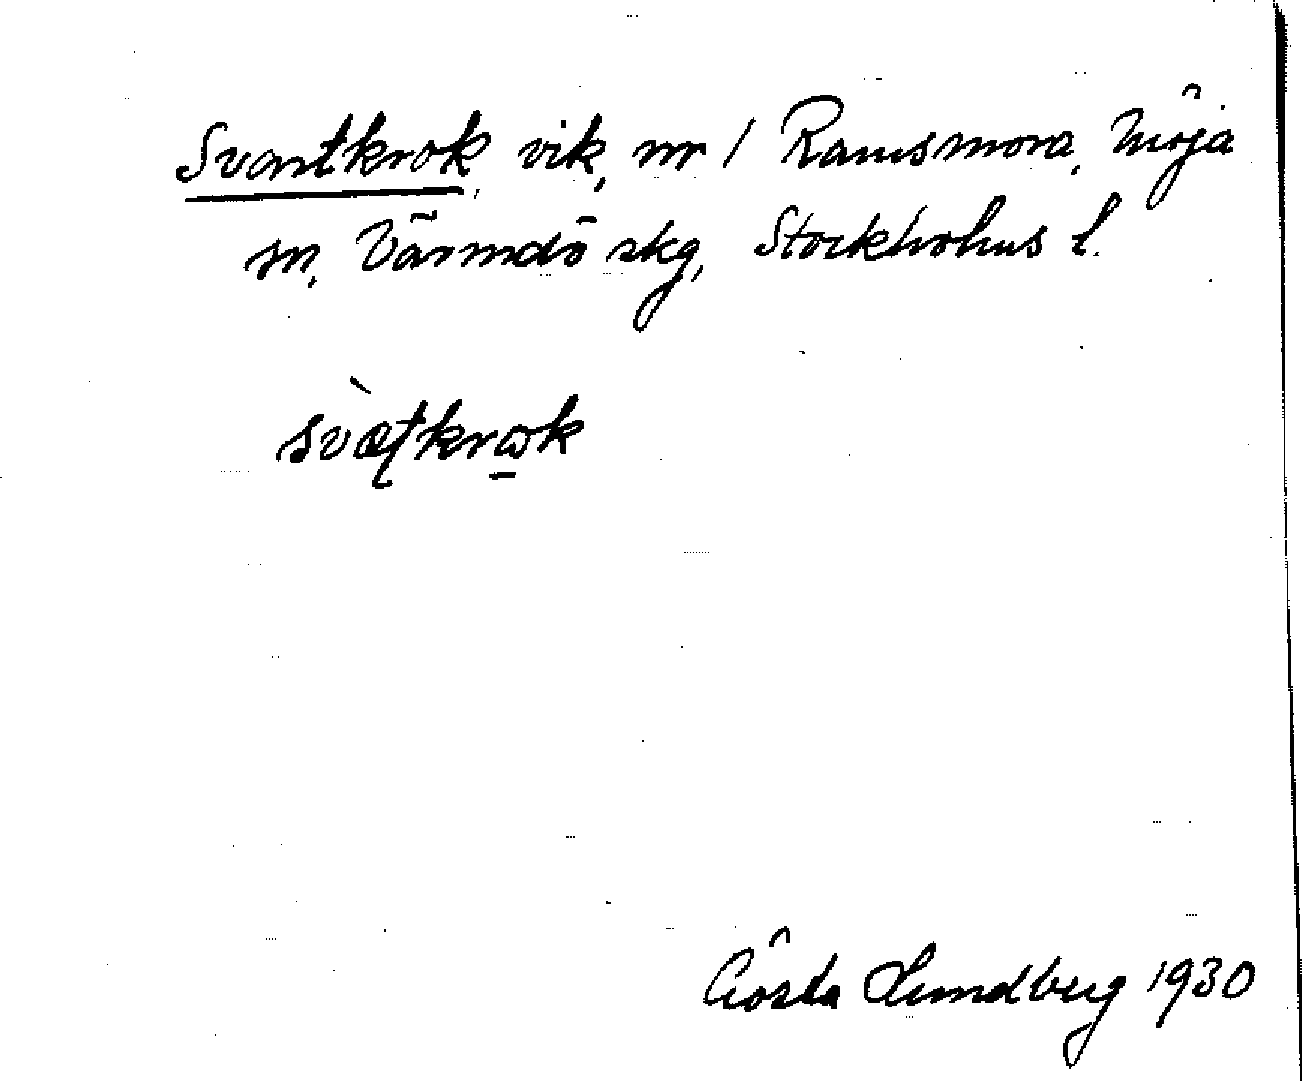 Svartkrok, vik, nr 1 Ramsmora, Möja
sn, Värmdö skg, Stockholms l.
Gösta Lundberg 1930